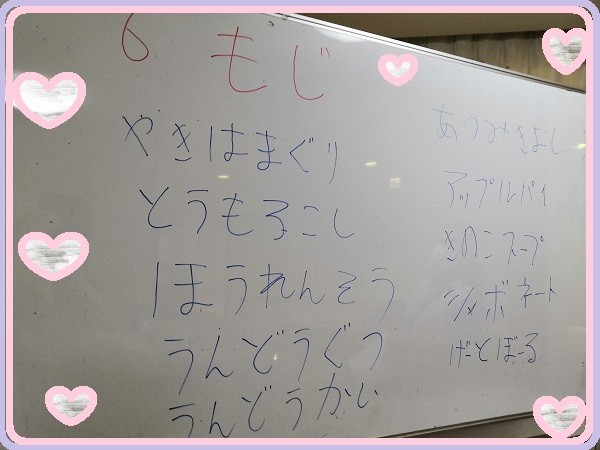 6 もじ
やきはまぐり
とうもろこし
ほうれんそう
うんどうぐつ
うんどうかい
あつみきよし
アップルパイ
きのこスープ
シャボネート
げーとぼーる